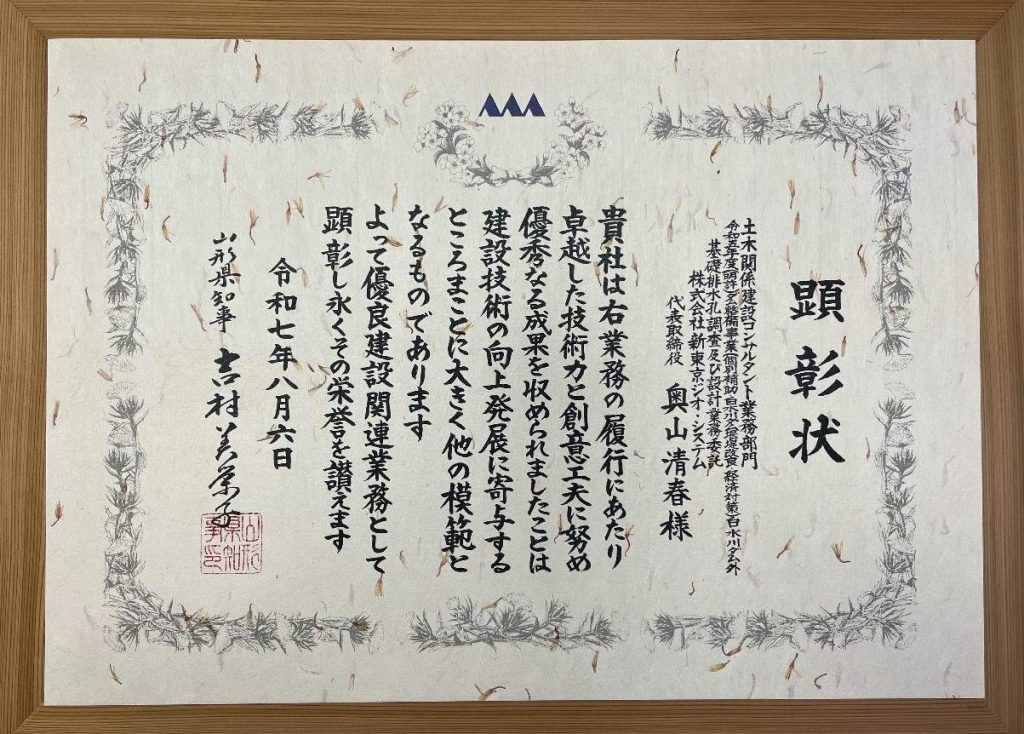 顕彰状
土木関係建設コンサルタント業務部門
令和五年度(明許)ダム整備事業(個別補助)白水川ダム堰堤改良(経済対策)白水川ダム外
基礎排水孔調査及び設計業務委託
株式会社新東京ジオ・システム
代表取締役 奥山清春様
貴社は右業務の履行にあたり
卓越した技術力と創意工夫に努め
優秀なる成果を収められましたことは
建設技術の向上発展に寄与する
ところまことに大きく他の模範と
なるものであります
よって優良建設関連業務として
顕彰し永くその栄誉を讃えます
令和七年八月六日
山形県知事 吉村美栄子
山形県知事印